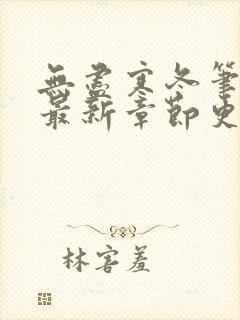 無盡寒冬筆
最新章節史
林害羞